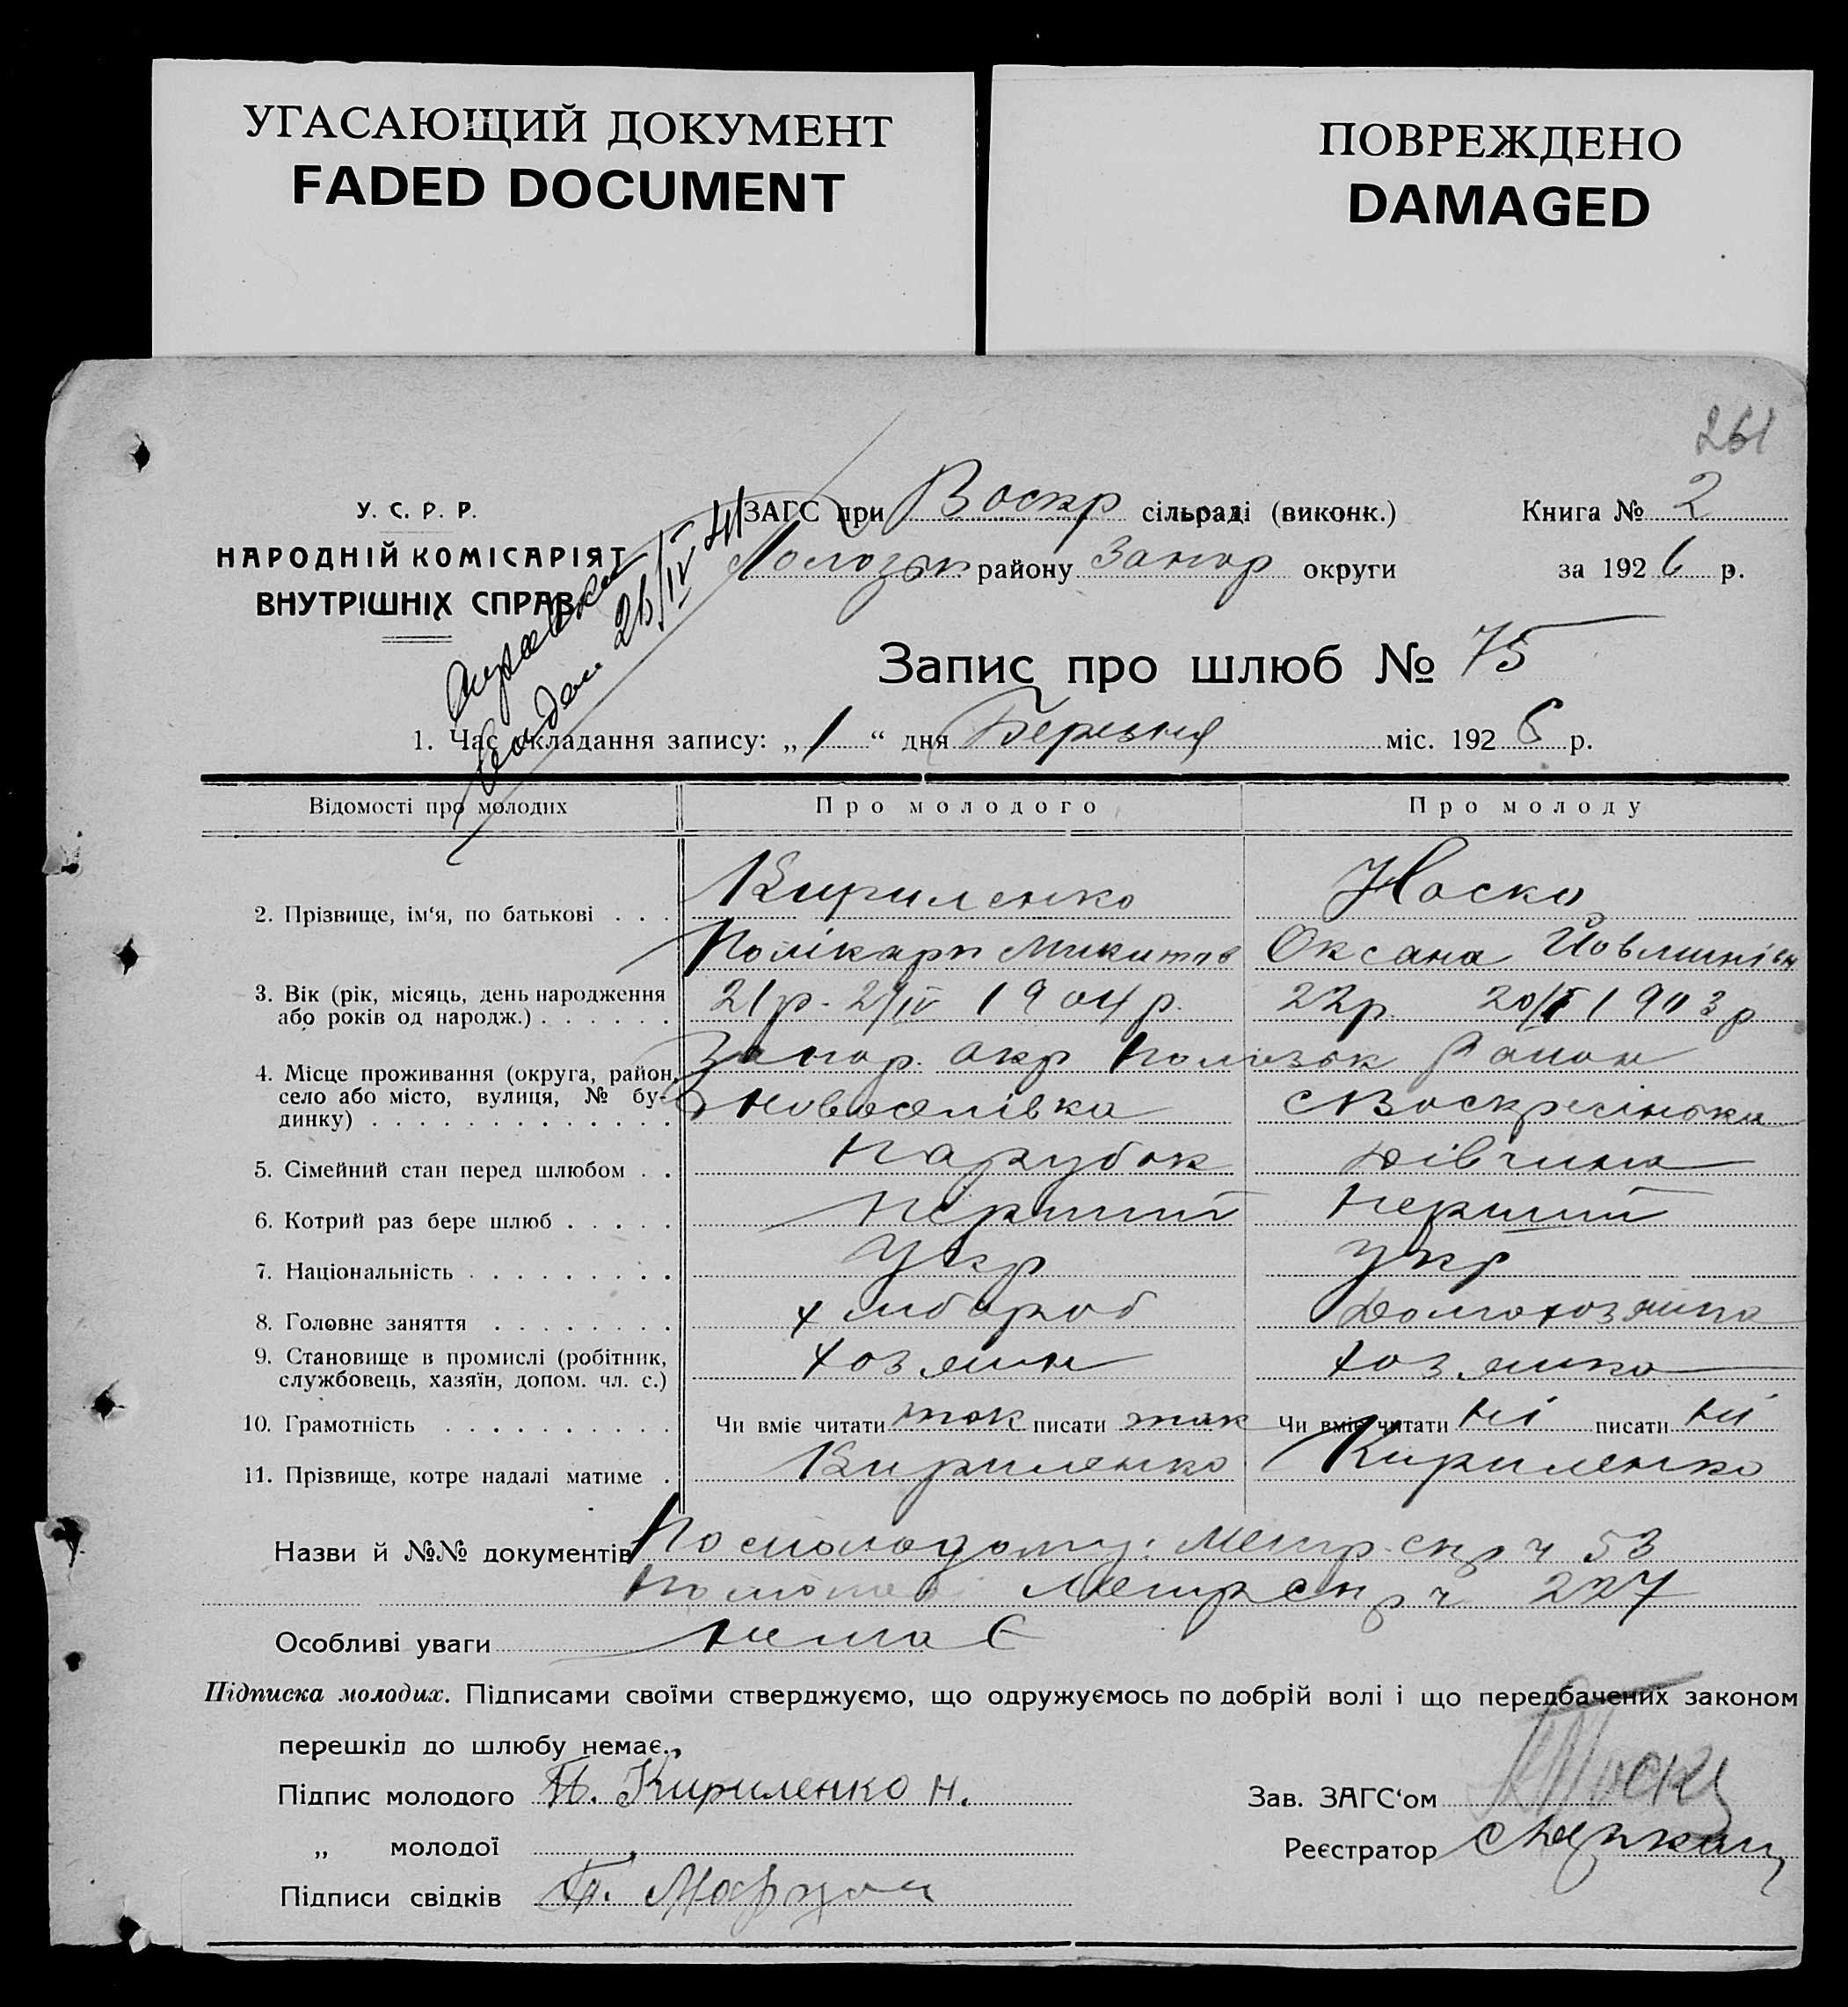 УГАСАЮЩИЙ ДОКУМЕНТ
FADED DOCUMENT
ПОВРЕЖДЕНО
DAMAGED
261
У. С. Р. Р.
НАРОДНІЙ КОМІСАРІЯТ
ВНУТРІШНІХ СПРАВ
26/IV 41
ЗАГС при Воскр сільраді (виконк.)
району Запор округи
Книга № 2
за 1926 р.
Запис про шлюб № 75
1. Час складання запису: „ 1 “ дня Березня міс. 1926 р.
Відомості про молодих Про молодого Про молоду
2. Прізвище, ім‘я, по батькові . . . Кириленко Носко
Полікарп Микитов Оксана Йовлишівн
3. Вік (рік, місяць, день народження
або років од народж.) . . . . . . 21р. 2/IV 1904р. 22р 1903р
4. Місце проживання (округа, район, Запор. окр Пологськ Район
село або місто, вулиця, № бу-
динку) . . . . . . . . . . . . . Новоселівка с Воскресінька
5. Сімейний стан перед шлюбом . . Парубок Дівчина
6. Котрий раз бере шлюб . . . . . Перший Перший
7. Національність . . . . . . . . . Укр Укр
8. Головне заняття . . . . . . . . хлібороб Домохозяйка
9. Становище в промислі (робітник,
службовець, хазяїн, допом. чл. с.) хозяин хозяйка
10. Грамотність . . . . . . . . . . Чи вміє читати так писати так Чи вміє читати ні писати ні
11. Прізвище, котре надалі матиме . Кириленко Кириленко
Назви й №№ документів По молодому: Метр. скр ч 53
Метр скр ч 227
Особливі уваги немає
Підписка молодих. Підписами своїми стверджуємо, що одружуємось по добрій волі і що передбачених законом
перешкід до шлюбу немає.
Підпис молодого П. Кириленко Н.
„ молодої
Підписи свідків
Зав. ЗАГС‘ом
Реєстратор